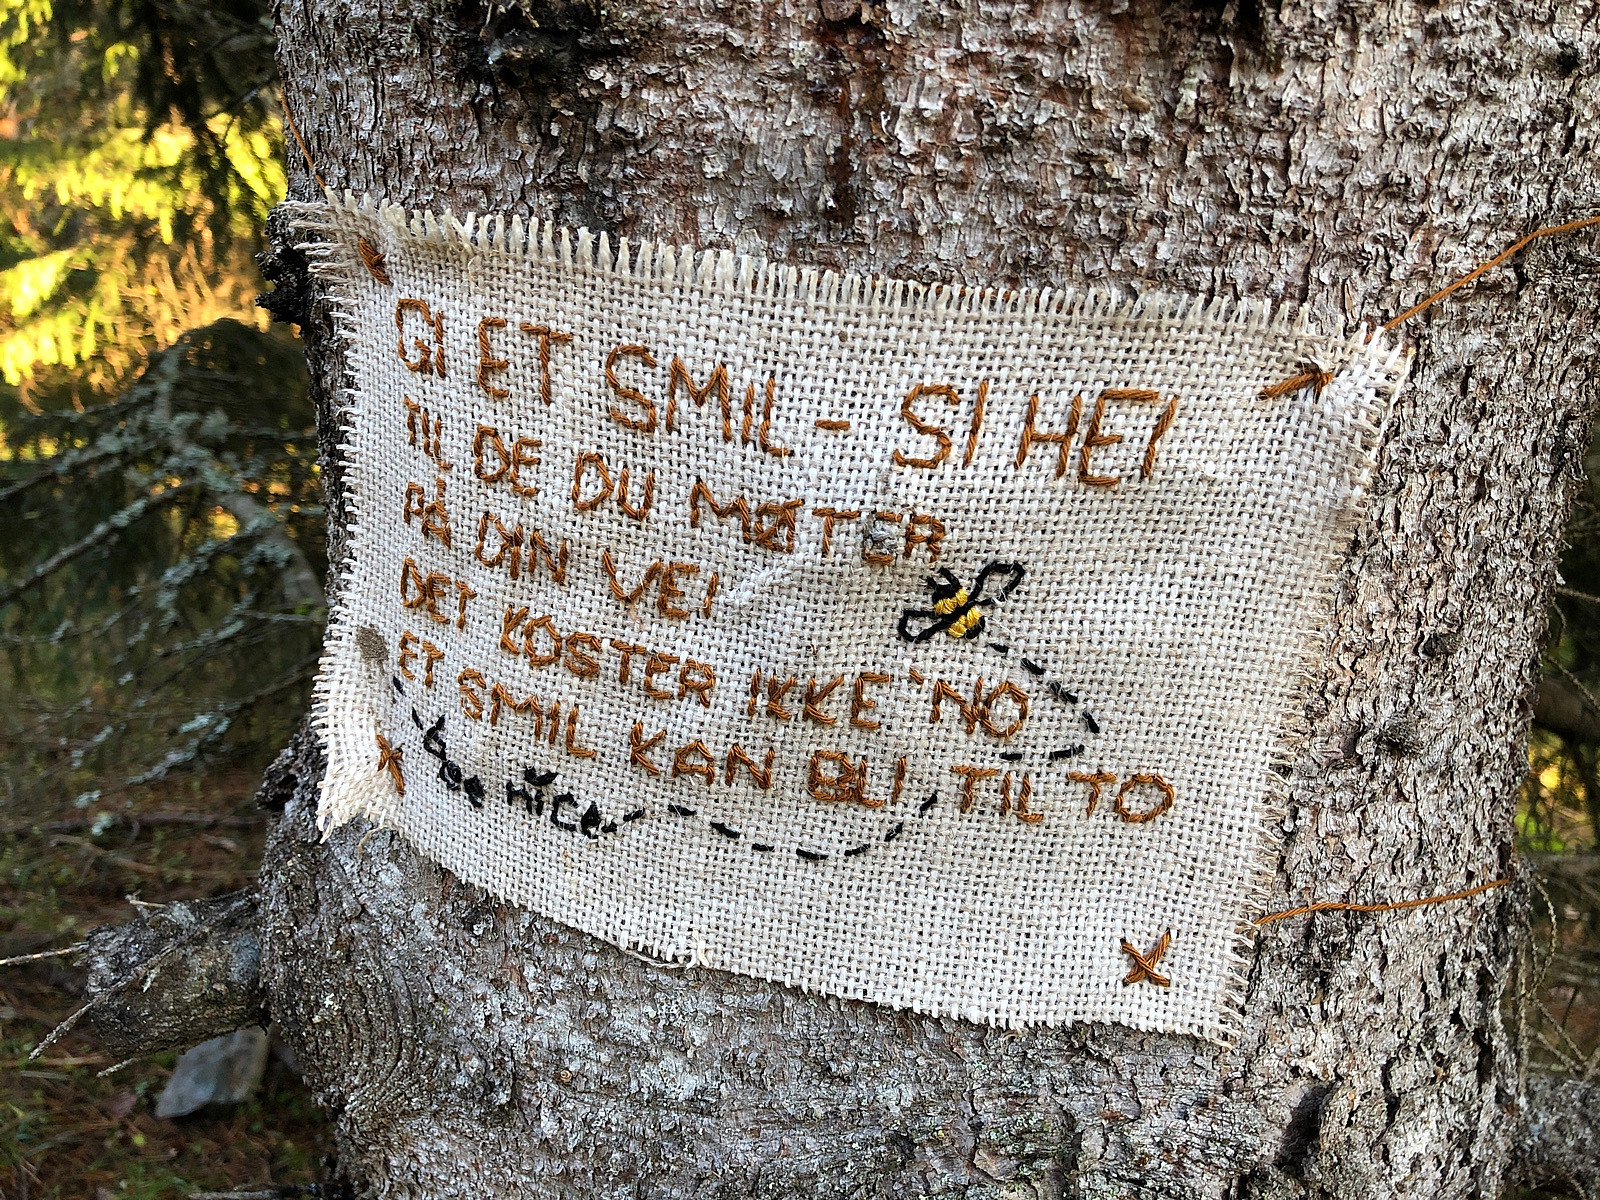 GI ET SMIL - SI HEI
TIL DE DU MØTER
PÅ DIN VEI
DET KOSTER IKKE NO
ET SMIL KAN BLI TIL TO
bee nice